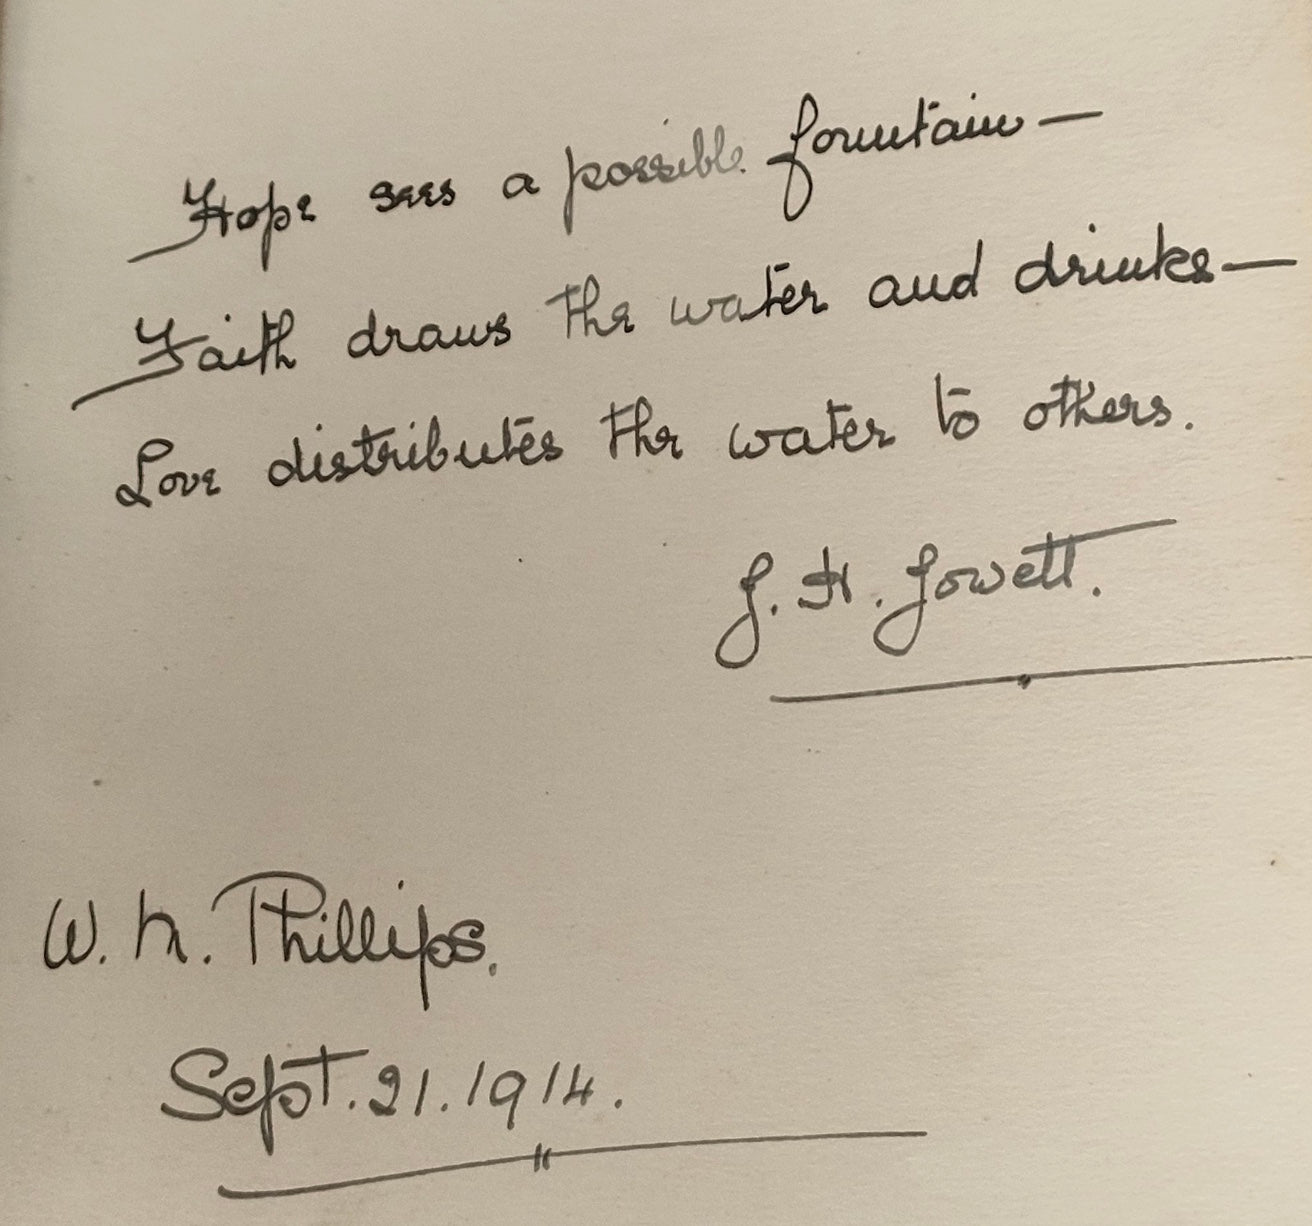 Hope sees a possible fountain—
Faith draws the water and drinks—
Love distributes the water to others.
J. H. Jowett.
W. N. Phillips.
Sept. 21. 1914.